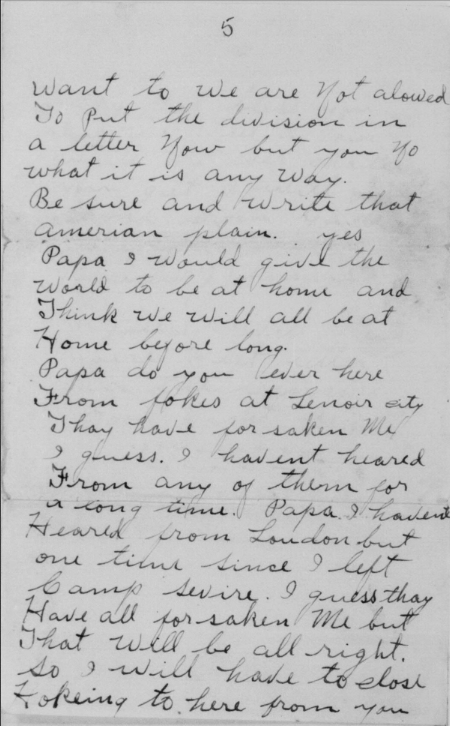 5
want to we are Not alowed
To Put the division in
a letter Now but you No
what it is any way.
Be sure and write that
amerian plain. yes
Papa I would give the
world to be at home and
Think we will all be at
Home before long.
Papa do you ever here
From fokes at Lenoir city
Thay have for saken Me
I guess. I havent heared
From any of them for
a long time. Papa I havent
Heared from Loudon but
one time since I left
Camp Sevire. I guess thay
Have all for saken Me but
That will be all right.
So I will have to close
Hokeing to here from you